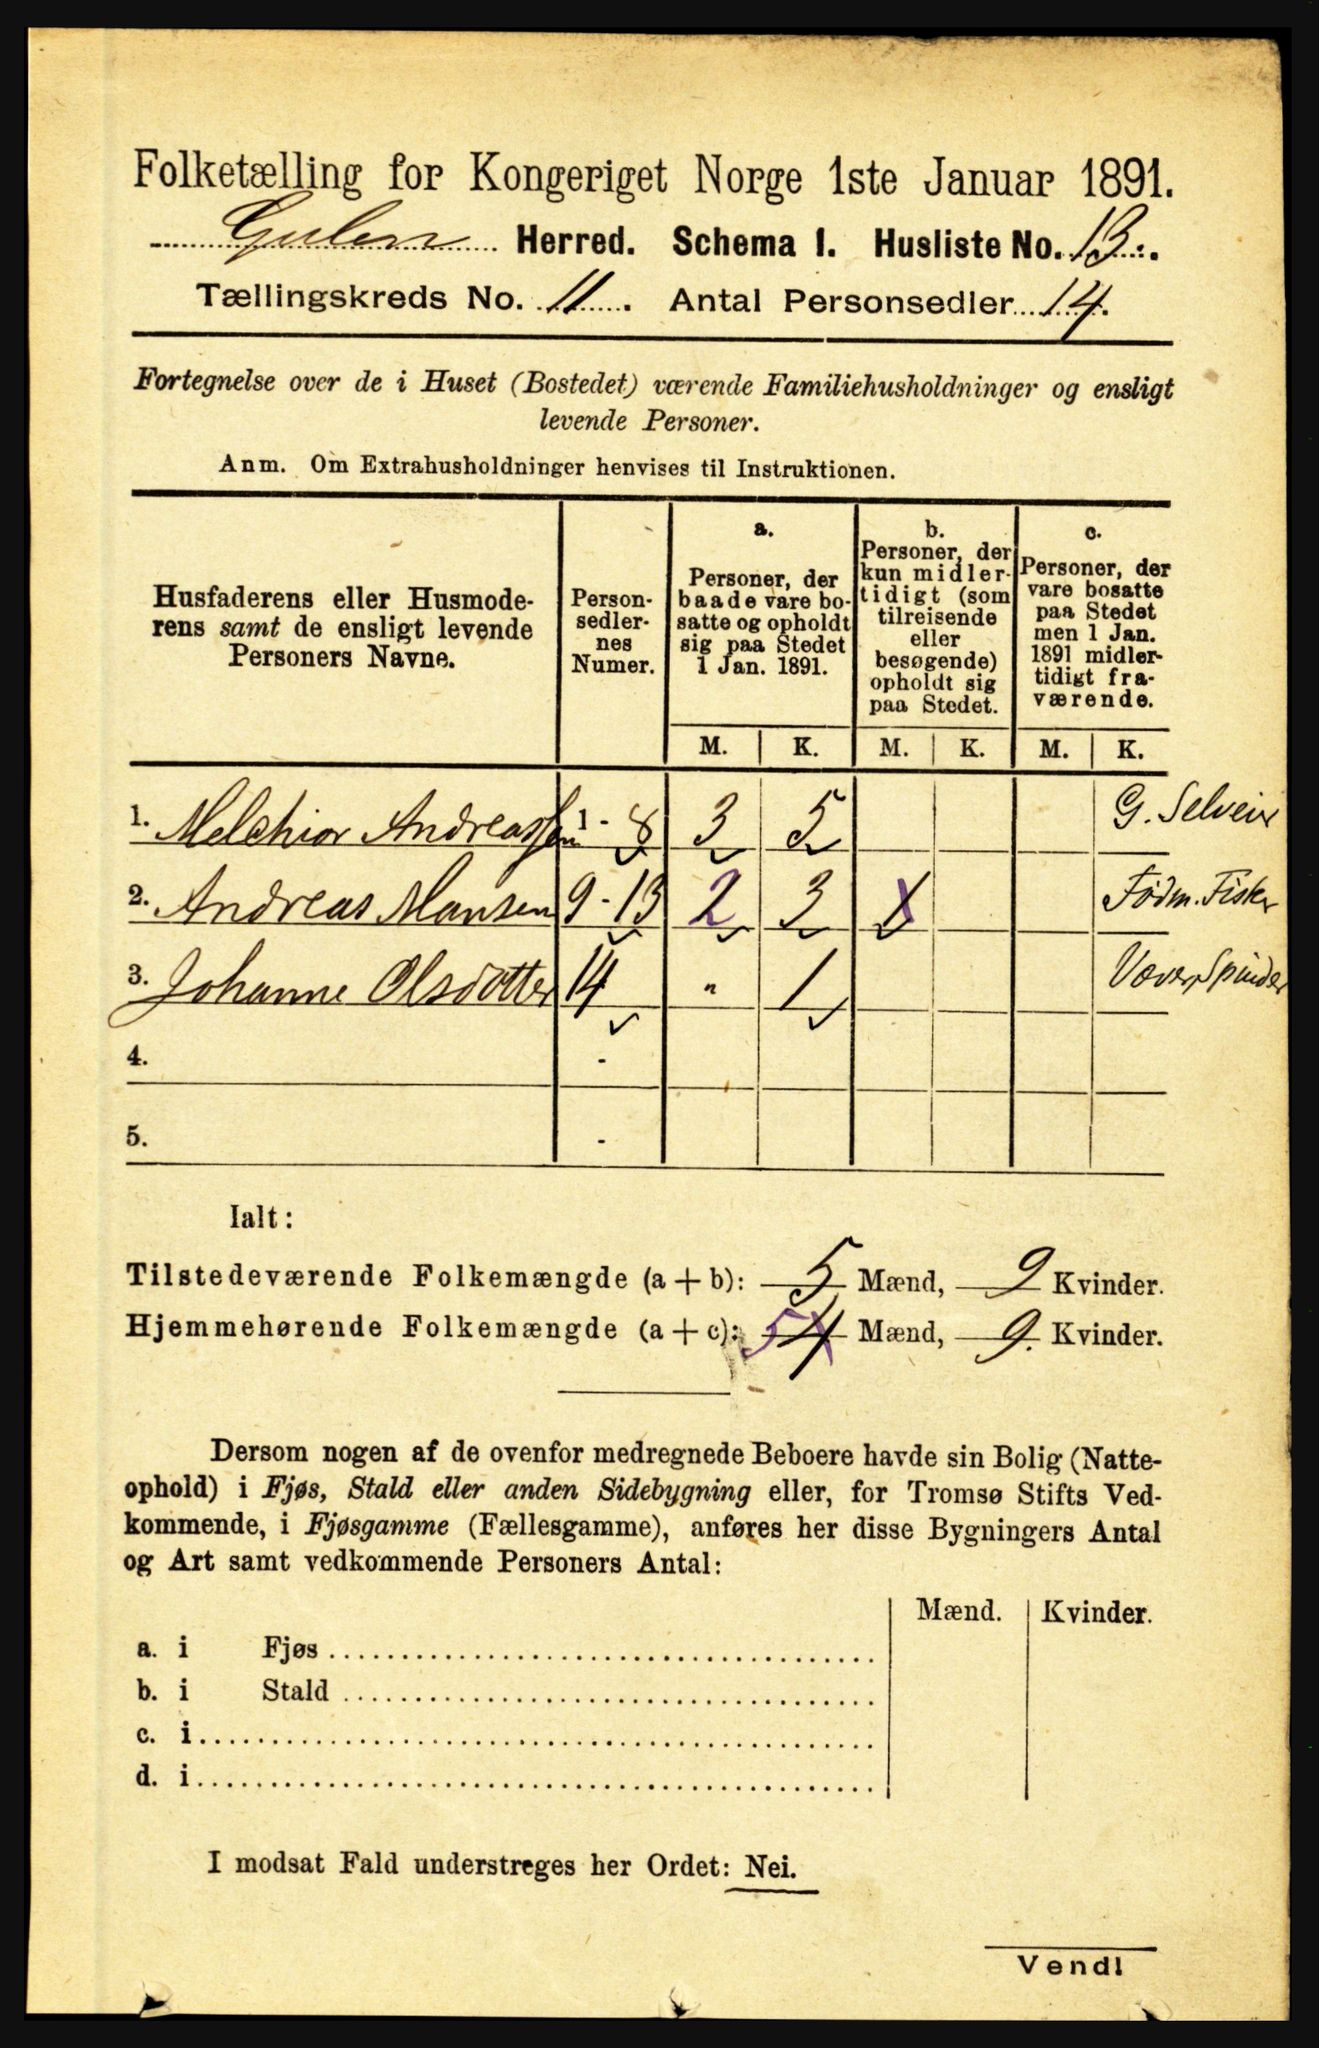 Folketælling for Kongeriget Norge 1ste Januar 1891.
Gulen Herred. Schema 1. Husliste No. 13.
Tællingskreds No. 11. Antal Personsedler 14.
Fortegnelse over de i Huset (Bostedet) værende Familiehusholdninger og ensligt
levende Personer.
Anm. Om Extrahusholdninger henvises til Instruktionen.
Husfaderens eller Husmode-
rens samt de ensligt levende
Personers Navne.
Person-
sedler-
nes
Numer.
a.
Personer, der
baade vare bo-
satte og opholdt
sig paa Stedet
1 Jan. 1891.
b.
Personer, der
kun midler-
tidigt (som
tilreisende
eller
besøgende)
opholdt sig
paa Stedet.
c.
Personer, der
vare bosatte
paa Stedet
men 1 Jan.
1891 midler-
tidigt fra-
værende.
M. K. M. K. M. K.
1. Melchior Andreassen 1 - 8 3 5 G. Selveier
2. Andreas Monsen 9 - 13 2 3 1 Fødm. Fisker
3. Johanne Olsdotter 14 " 1 Væver, Spinder
4. -
5. -
Ialt:
Tilstedeværende Folkemængde (a + b): 5 Mænd, 9 Kvinder.
Hjemmehørende Folkemængde (a + c): 5 4 Mænd, 9. Kvinder.
Dersom nogen af de ovenfor medregnede Beboere havde sin Bolig (Natte-
ophold) i Fjøs, Stald eller anden Sidebygning eller, for Tromsø Stifts Ved-
kommende, i Fjøsgamme (Fællesgamme), anføres her disse Bygningers Antal
og Art samt vedkommende Personers Antal:
Mænd. Kvinder.
a. i Fjøs
b. i Stald
c. i
d. i
I modsat Fald understreges her Ordet: Nei.
Vend!